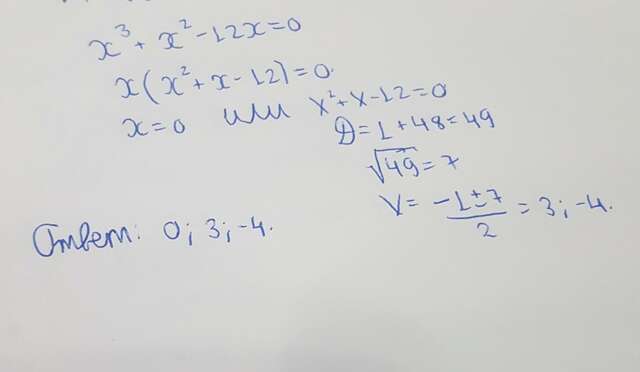 x³ + x² - 12x = 0
x(x² + x - 12) = 0.
x = 0 или x² + x - 12 = 0
D = 1 + 48 = 49
√49 = 7
x = (-1 ± 7)/2 = 3; -4.
Ответ: 0; 3; -4.